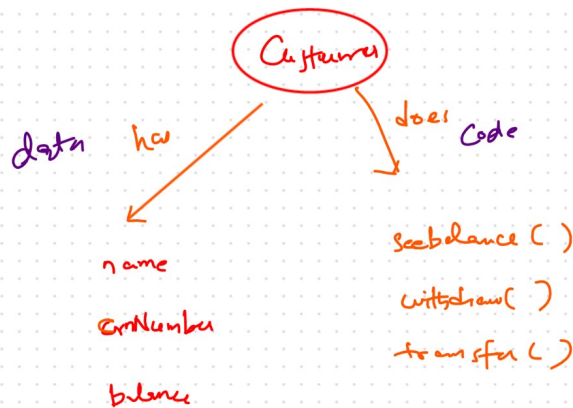 Customer
data has does Code
name
balance
seebalance ( )
withdraw( )
transfer ( )